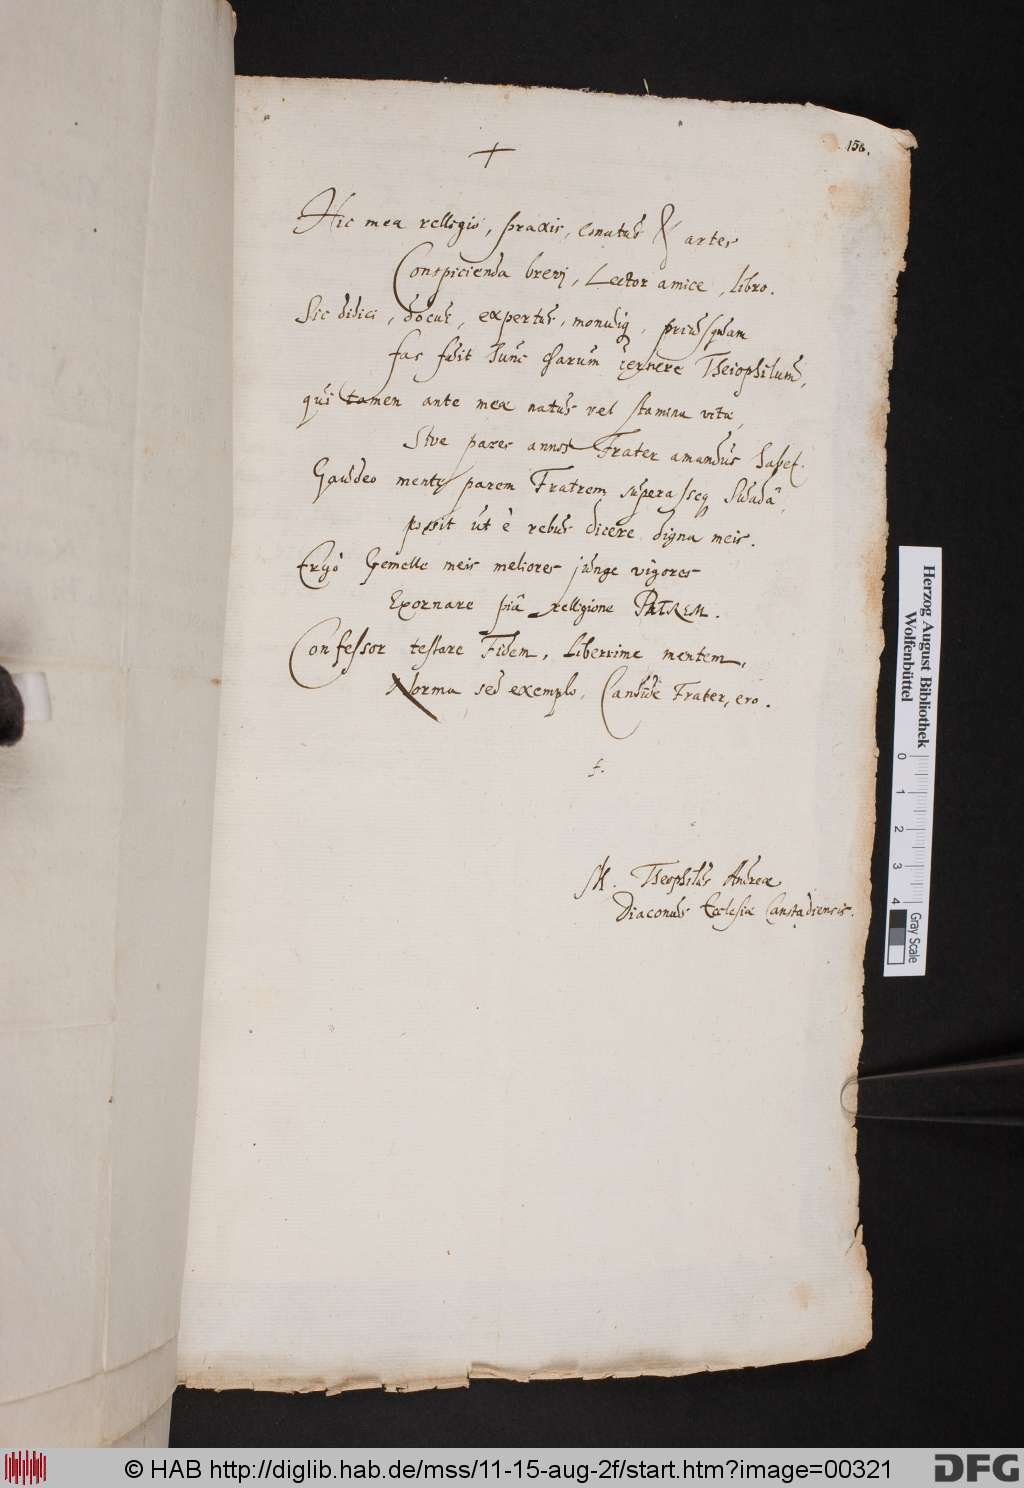 156.
+
Hic mea relligio, praxis, conatus & artes
Conspicienda brevj, Lector amice, libro.
Sic didici, docui, expertus, monuiq, priusquam
fas fuit hunc charum cernere Theiophilum,
qui tamen ante meæ natus vel stamina vitæ,
Sive pares annos Frater amandus habet.
Gaudeo mentis parem Fratrem superasseq Suadâ,
possit ut è rebus dicere digna meis.
Ergò Gemelle meis meliores junge vigores
Exornare piâ relligione PATREM.
Confessor testare Fidem, Liberrime mentem,
Norma sed exemplo, Candide Frater, ero.
M. Theophilus Andreæ
Diaconus Ecclesiæ Canstadiensis.
Herzog August Bibliothek
Wolfenbüttel
0 1 2 3 4
Gray Scale
© HAB http://diglib.hab.de/mss/11-15-aug-2f/start.htm?image=00321
DFG